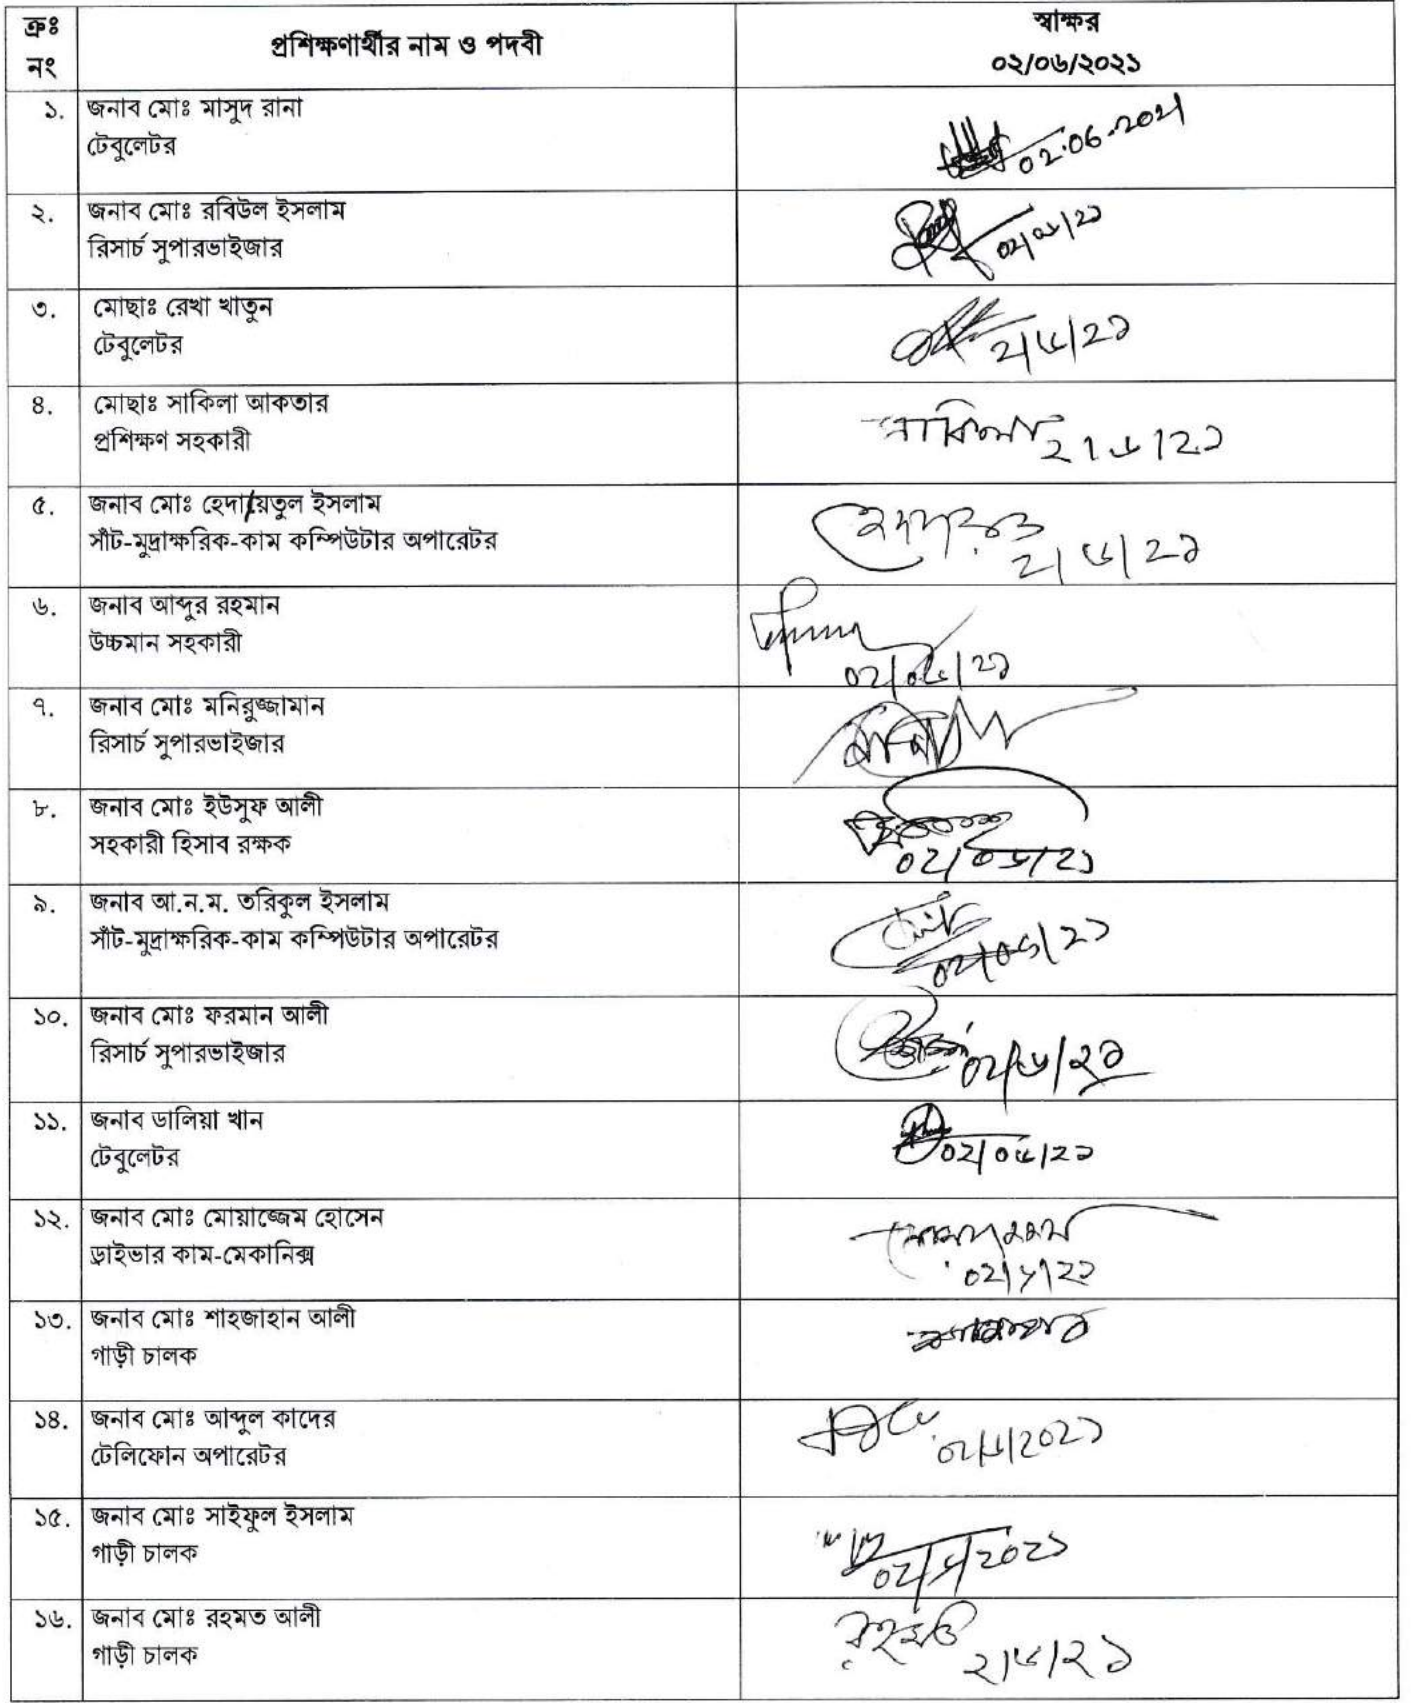 ক্রঃ নং
প্রশিক্ষণার্থীর নাম ও পদবী
স্বাক্ষর
০২/০৬/২০২১
১. জনাব মোঃ মাসুদ রানা
টেবুলেটর
02.06.2021
২. জনাব মোঃ রবিউল ইসলাম
রিসার্চ সুপারভাইজার
০২/০৬/২১
৩. মোছাঃ রেখা খাতুন
টেবুলেটর
২/৬/২১
৪. মোছাঃ সাকিলা আকতার
প্রশিক্ষণ সহকারী
সাকিলা ২/৬/২১
৫. জনাব মোঃ হেদায়েতুল ইসলাম
সাঁট-মুদ্রাক্ষরিক-কাম কম্পিউটার অপারেটর
২/৬/২১
৬. জনাব আব্দুর রহমান
উচ্চমান সহকারী
০২/০৬/২১
৭. জনাব মোঃ মনিরুজ্জামান
রিসার্চ সুপারভাইজার
৮. জনাব মোঃ ইউসুফ আলী
সহকারী হিসাব রক্ষক
০২/০৬/২১
৯. জনাব আ.ন.ম. তরিকুল ইসলাম
সাঁট-মুদ্রাক্ষরিক-কাম কম্পিউটার অপারেটর
০২/০৬/২১
১০. জনাব মোঃ ফরমান আলী
রিসার্চ সুপারভাইজার
০২/৬/২১
১১. জনাব ডালিয়া খান
টেবুলেটর
০২/০৬/২১
১২. জনাব মোঃ মোয়াজ্জেম হোসেন
ড্রাইভার কাম-মেকানিক্স
০২/৬/২১
১৩. জনাব মোঃ শাহজাহান আলী
গাড়ী চালক
১৪. জনাব মোঃ আব্দুল কাদের
টেলিফোন অপারেটর
০২/৬/২০২১
১৫. জনাব মোঃ সাইফুল ইসলাম
গাড়ী চালক
০২/৬/২০২১
১৬. জনাব মোঃ রহমত আলী
গাড়ী চালক
রহমত ২/৬/২১